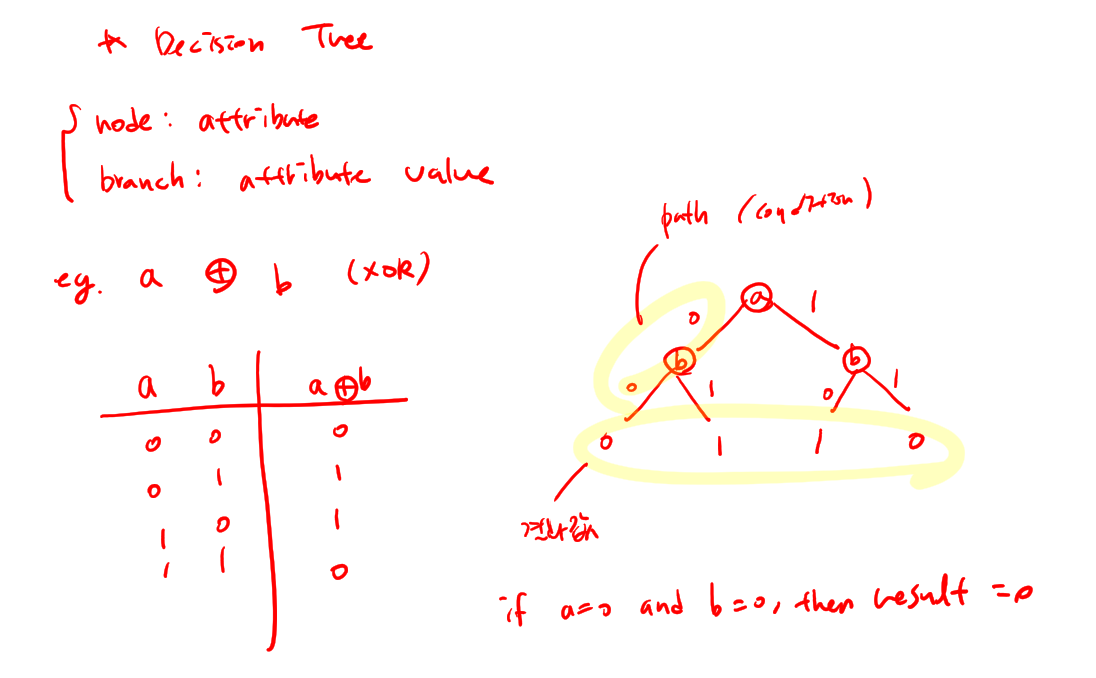 * Decision Tree
node: attribute
branch: attribute value
eg. a ⊕ b (XOR)
a b a⊕b
0 0 0
0 1 1
1 0 1
1 1 0
path (condition)
a
0 1
b b
0 1 0 1
0 1 1 0
결과값
if a=0 and b=0, then result =0